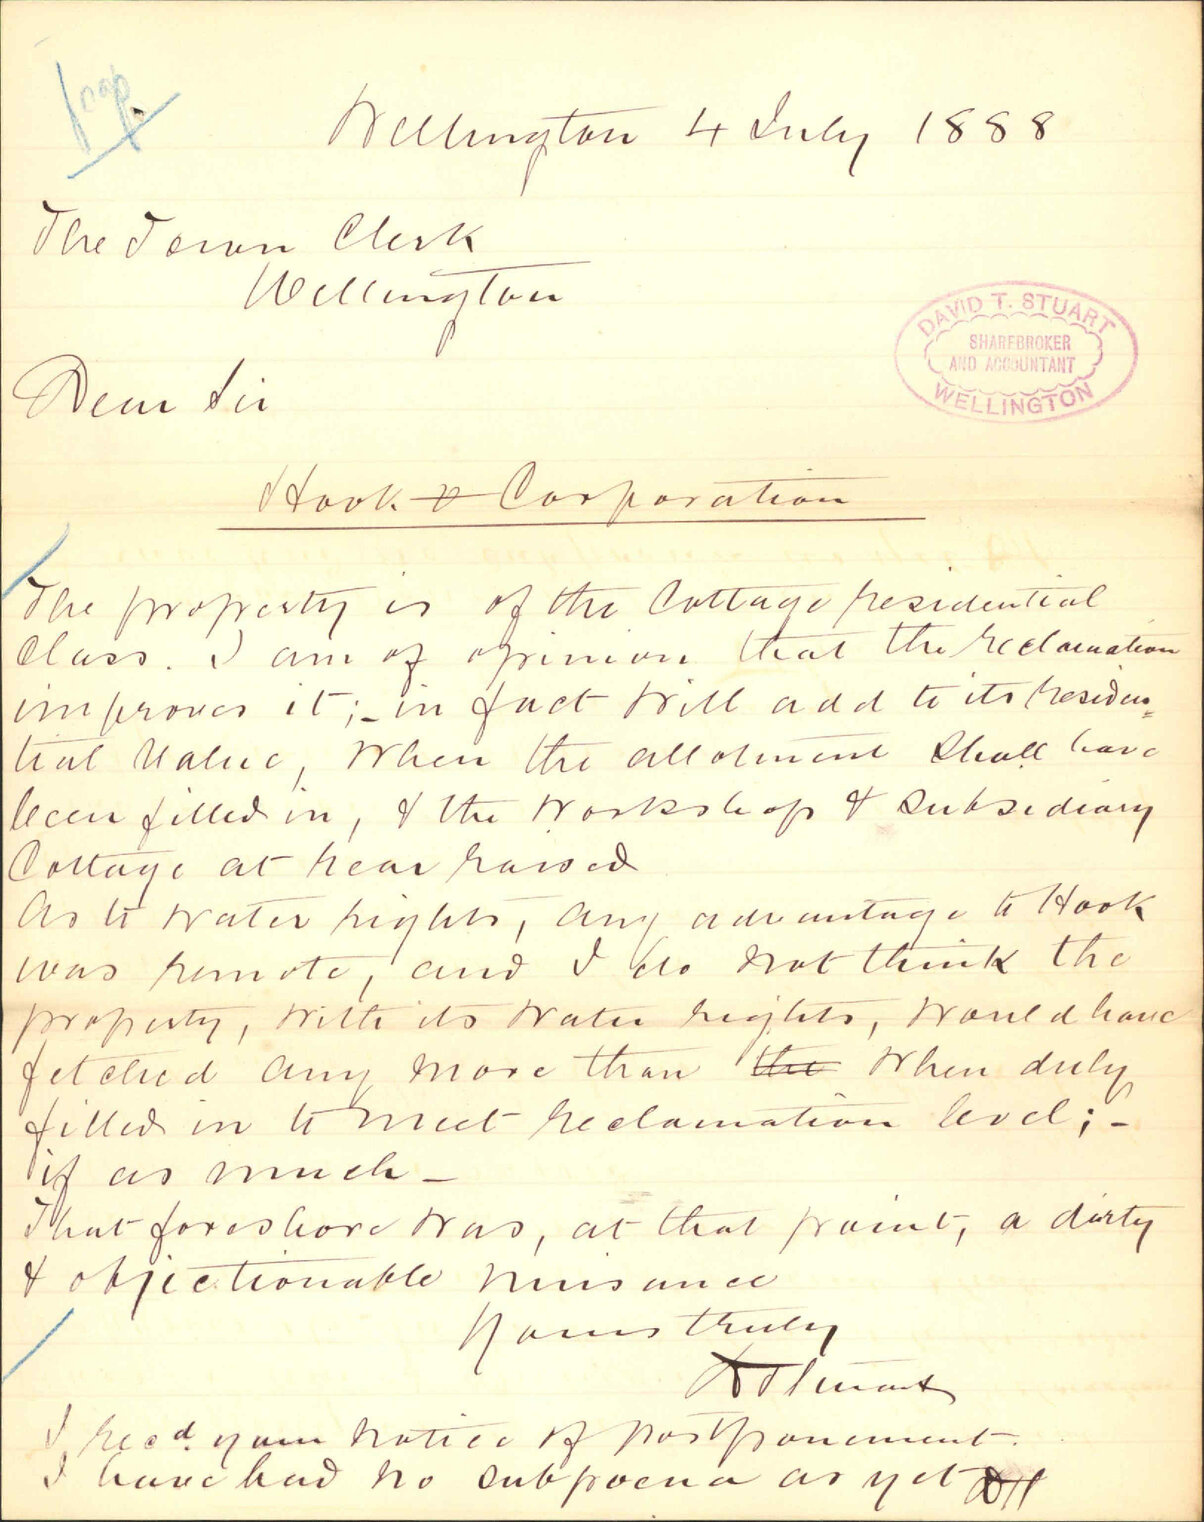 Wellington 4 July 1888
The Town Clerk
Wellington
DAVID T. STUART
SHAREBROKER
AND ACCOUNTANT
WELLINGTON
Dear Sir
Hook v Corporation
The property is of the Cottage residential
Class. I am of opinion that the reclamation
improves it; - in fact will add to its residen=
tial Value, when the allotment shall have
been filled in, & the workshop & subsidiary
Cottage at rear raised
As to water rights, any advantage to Hook
was remote, and I do not think the
property, with its water rights, would have
fetched any more than the when duly
filled in to meet reclamation level; -
if as much -
That foreshore was, at that point, a dirty
& objectionable nuisance
Yours truly
DTStuart
I recd. your notice of postponement.
I have had no subpoena as yet DTS